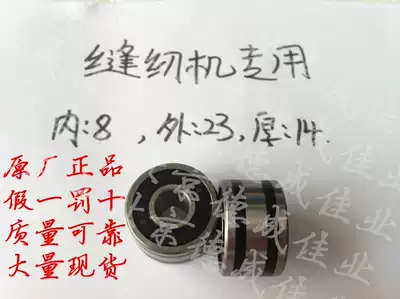 缝纫机专用
内:8，外:23，厚:14.
原厂正品
假一罚十
质量可靠
大量现货